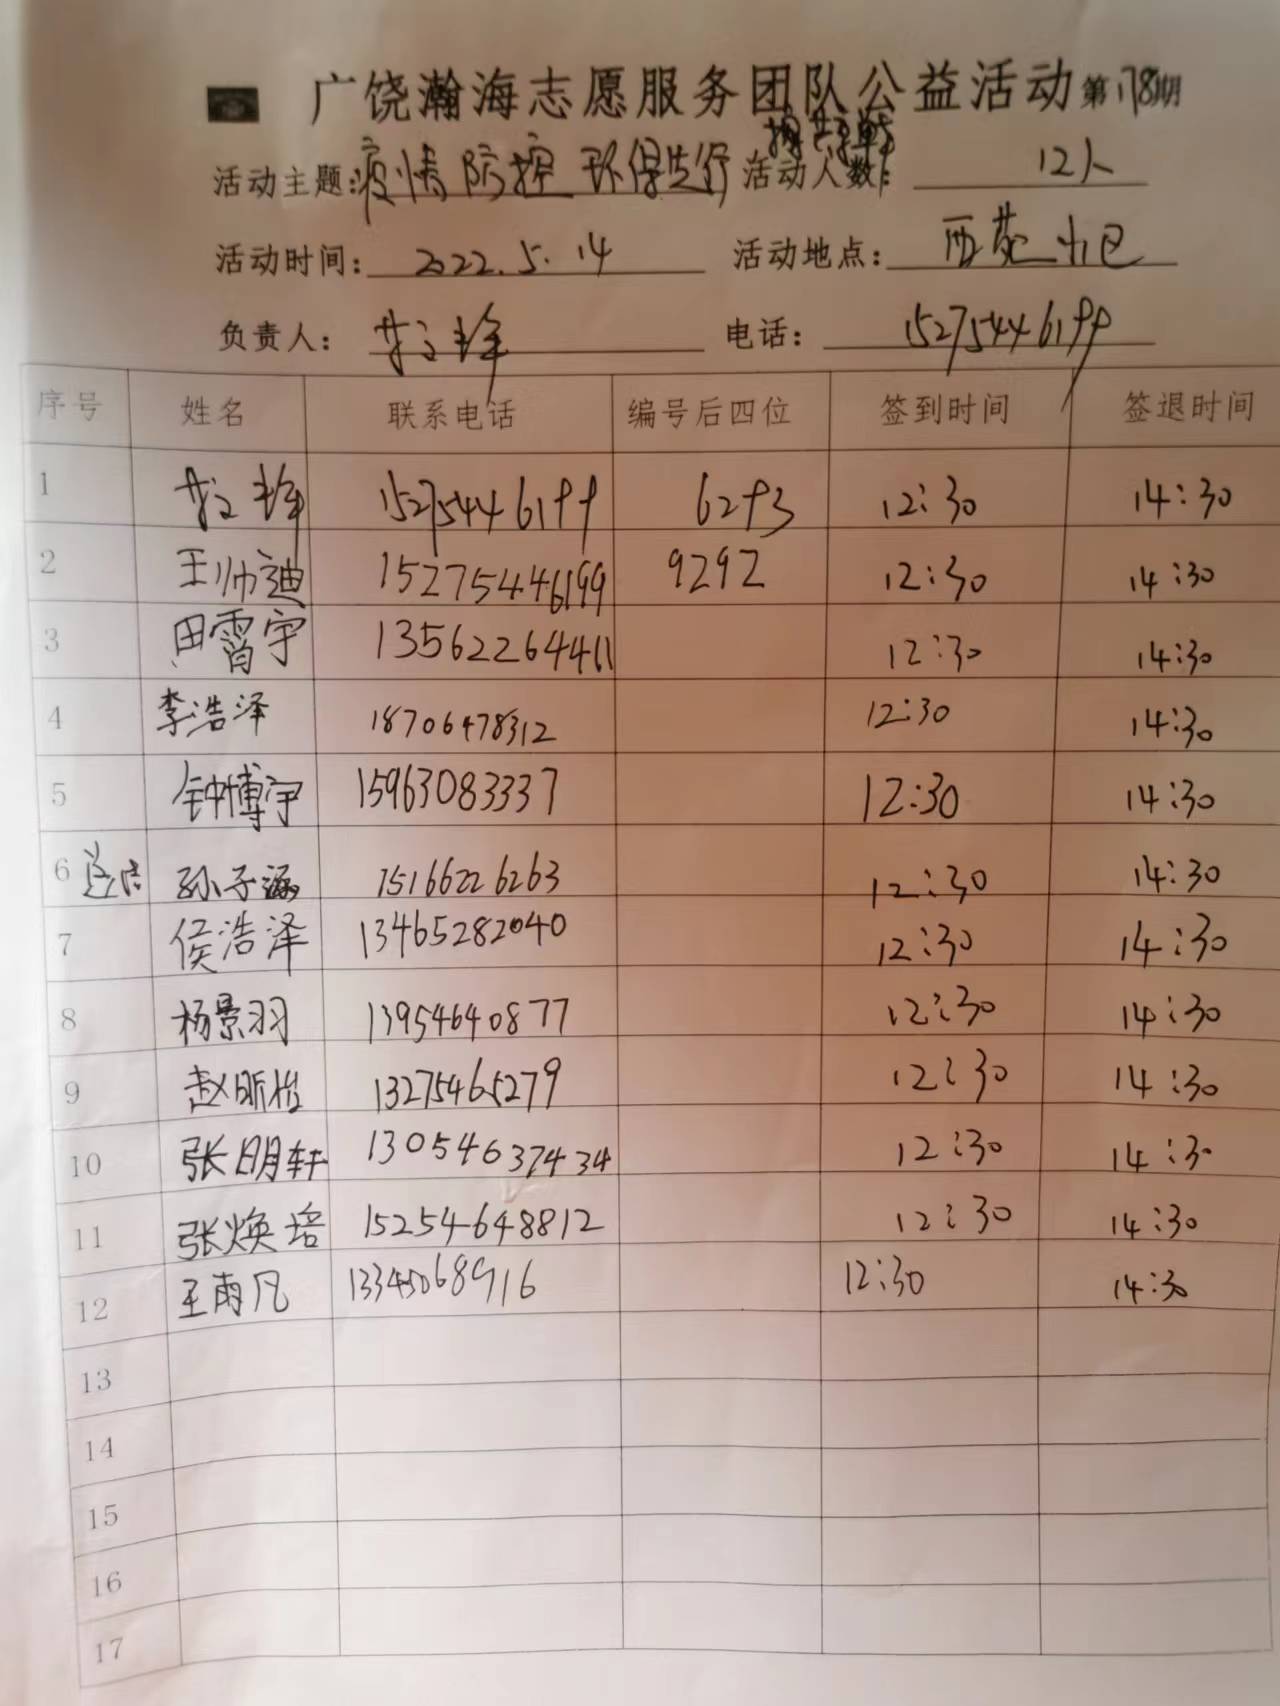 广饶瀚海志愿服务团队公益活动第178期
活动主题:疫情防控 环保先行 活动人数: 12人
活动时间: 2022.5.14 活动地点:
负责人: 电话: 15275446199
序号 姓名 联系电话 编号后四位 签到时间 签退时间
1 15275446199 6293 12:30 14:30
2 王帅迪 15275446199 9292 12:30 14:30
3 田霄宇 13562264461 12:30 14:30
4 李浩泽 18706478312 12:30 14:30
5 钟博宇 15963083337 12:30 14:30
6 孙子涵 15166226263 12:30 14:30
7 侯浩泽 13465282040 12:30 14:30
8 杨景羽 13954640877 12:30 14:30
9 赵昕怡 13275465279 12:30 14:30
10 张明轩 13054637434 12:30 14:30
11 张焕培 15254648812 12:30 14:30
12 王雨凡 13345068916 12:30 14:30
13
14
15
16
17